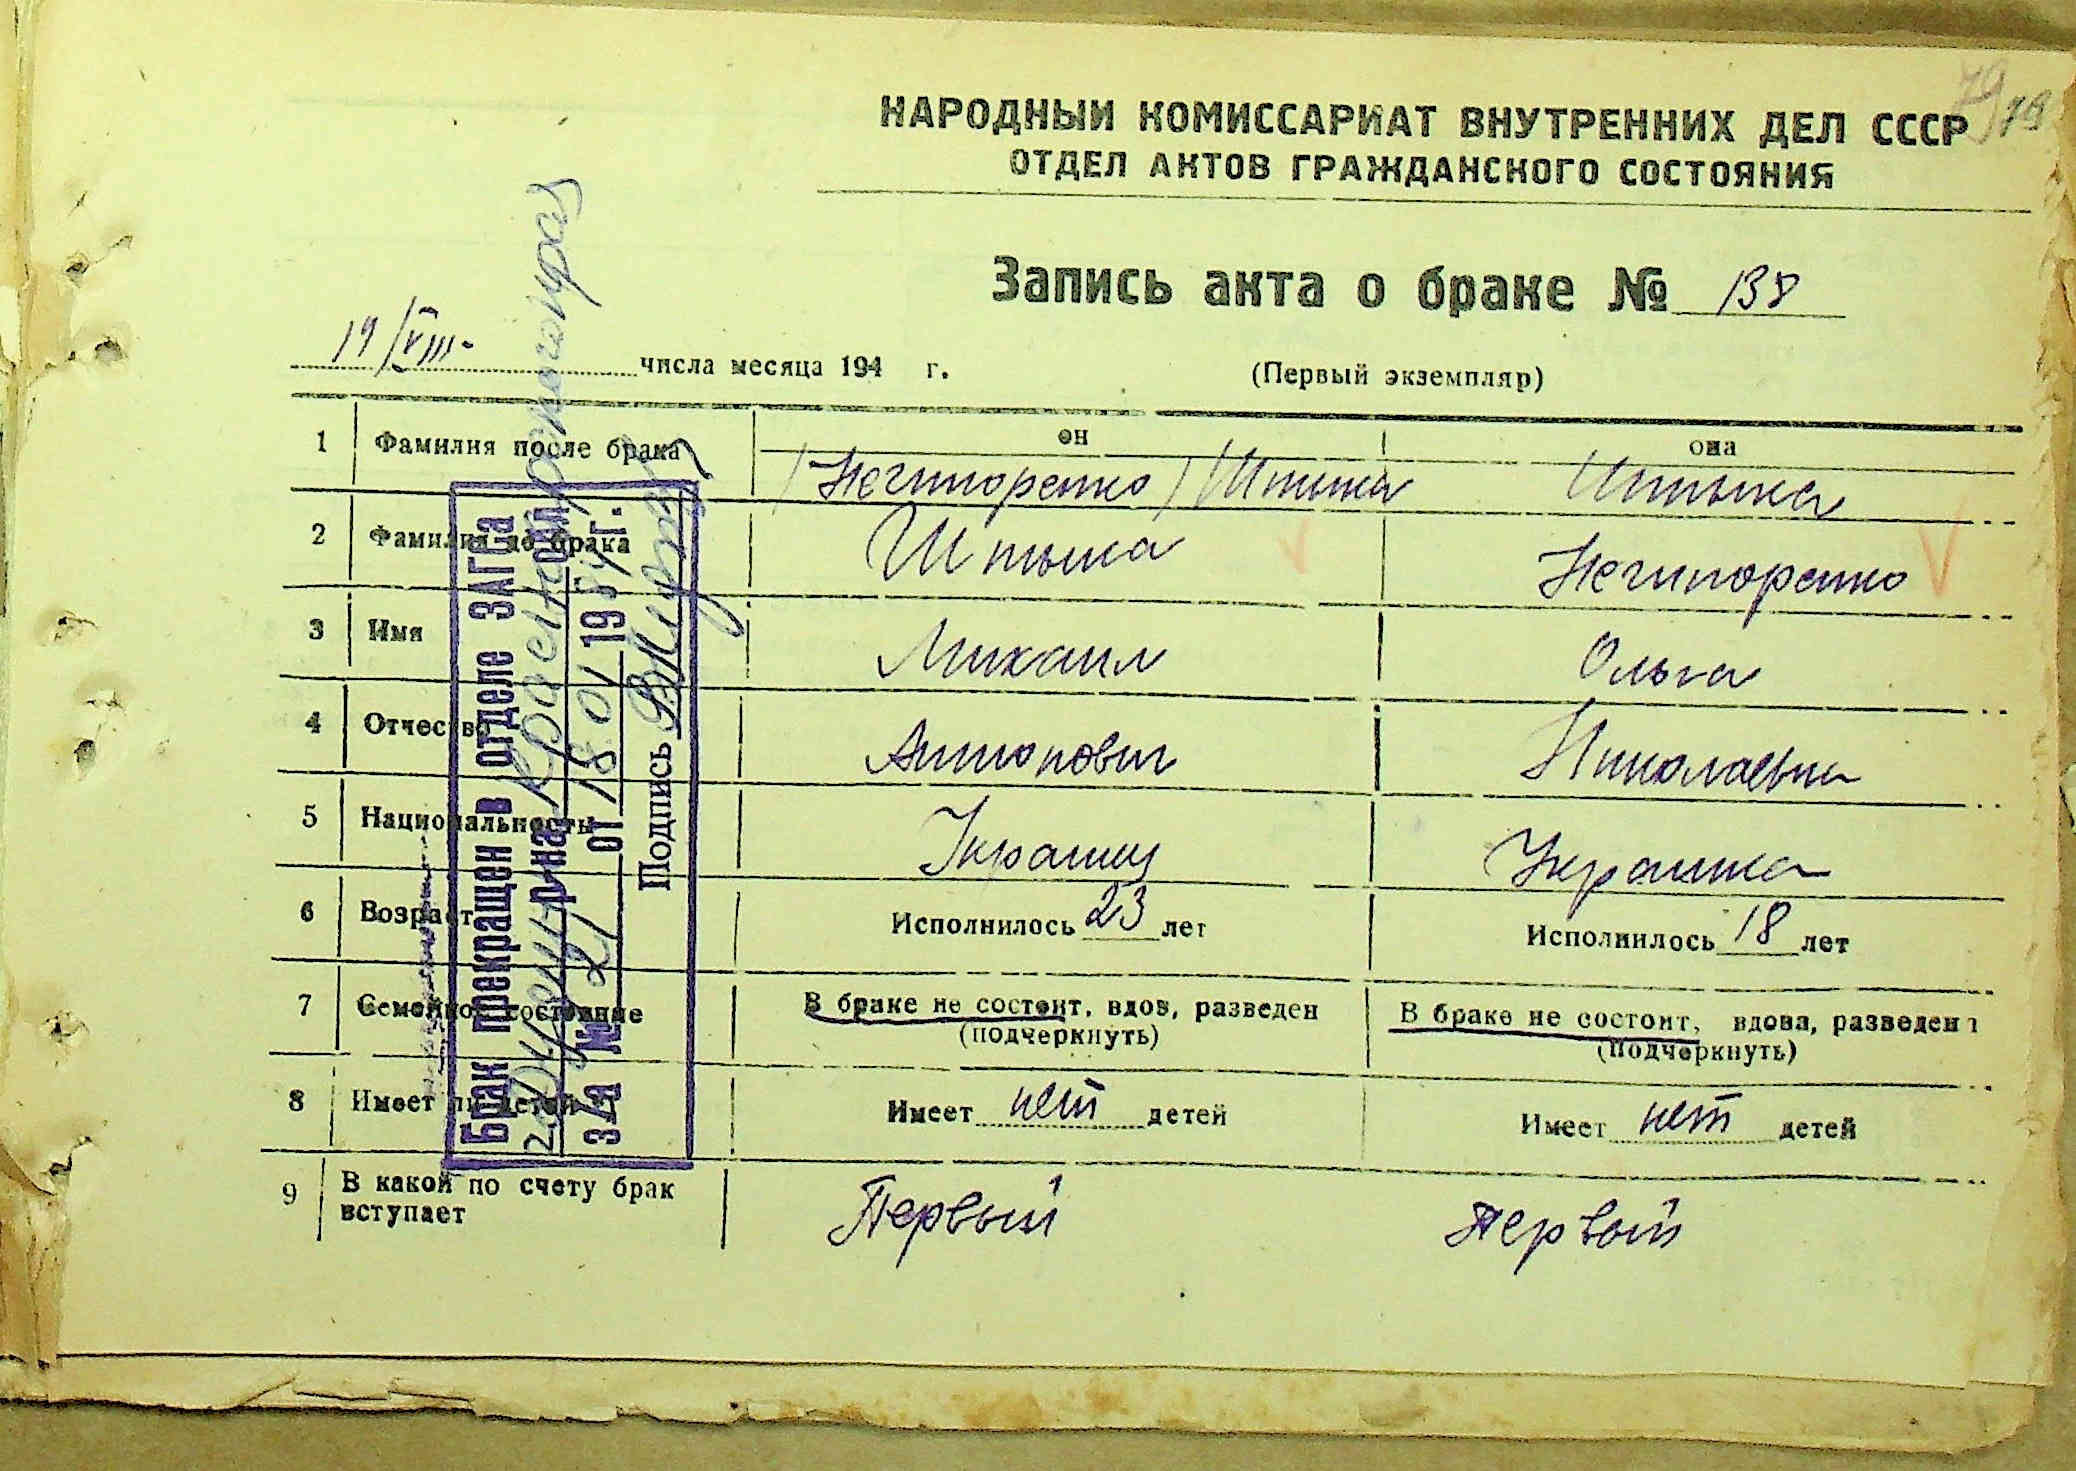 79 79
НАРОДНЫЙ КОМИССАРИАТ ВНУТРЕННИХ ДЕЛ СССР
ОТДЕЛ АКТОВ ГРАЖДАНСКОГО СОСТОЯНИЯ
Запись акта о браке № 138
19/VIII- числа месяца 194 г. (Первый экземпляр)
он она
1 Фамилия после брака (Нечипоренко) Шпыка Шпыка
2 Фамилия до брака Шпыка Нечипоренко
3 Имя Михаил Ольга
4 Отчество Антонович Николаевна
5 Национальность Украинец Украинка
6 Возраст Исполнилось 23 лет Исполнилось 18 лет
7 Семейное состояние В браке не состоит, вдов, разведен В браке не состоит, вдова, разведена
(подчеркнуть) (подчеркнуть)
8 Имеет ли детей Имеет нет детей Имеет нет детей
9 В какой по счету брак Первый Первый
вступает
Брак прекращен в отделе ЗАГСа
р-на обл.
з/а № 21 от 18.01 1984 г.
Подпись